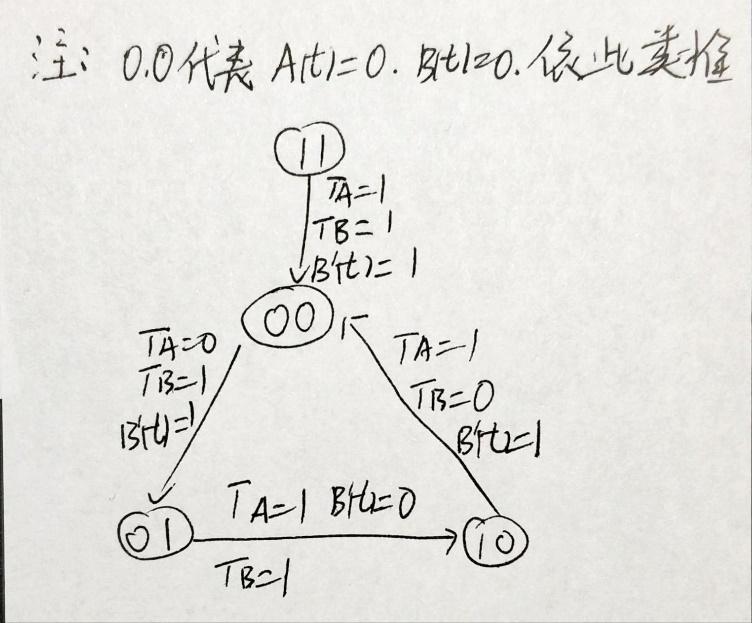 注: 0.0代表 A(t)=0. B(t)=0. 依此类推
11
TA=1
TB=1
B'(t)=1
00
TA=0
TB=1
B'(t)=1
TA=1
TB=0
B'(t)=1
TA=1 B'(t)=0
01
10
TB=1